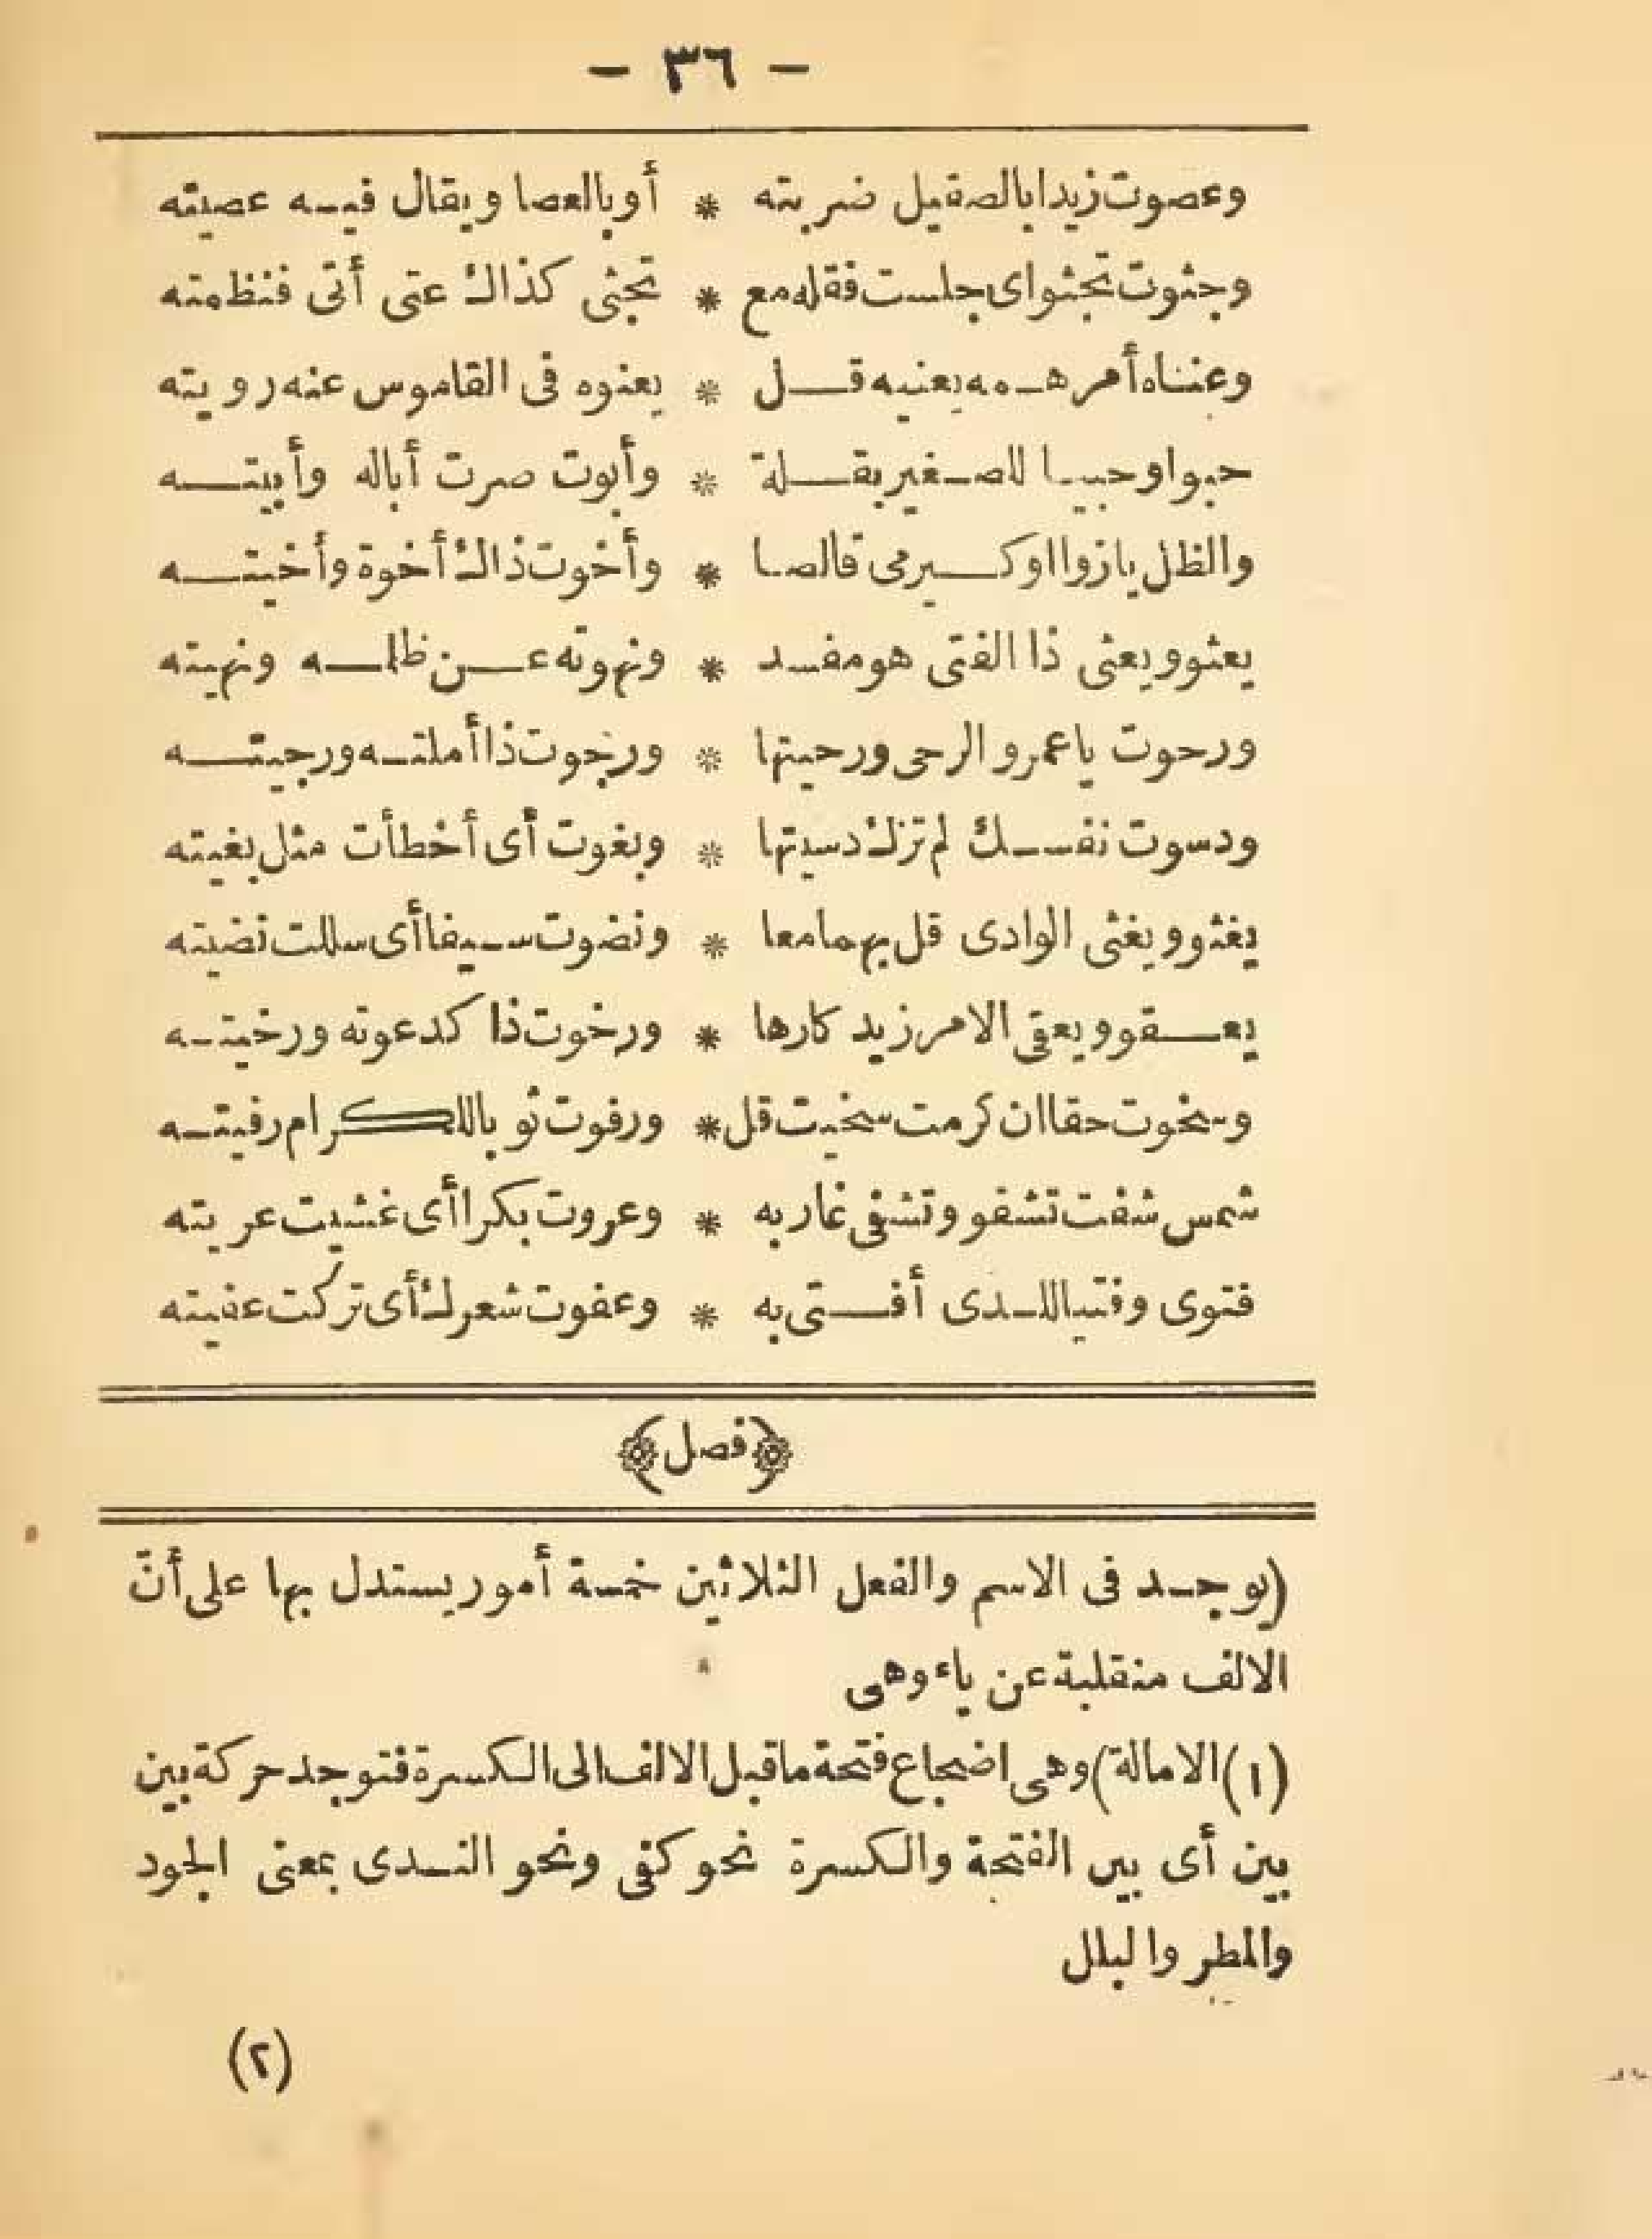 - ٣٦ -
وعصوت زيدا بالصقيل ضربته * أو بالعصا ويقال فيه عصيته
وجثوت تجثو اى جلست فقله مع * تجثى كذاك عتى أتى فنظمته
وعناه أمر همه يعنيه قل * يعنوه فى القاموس عنه رويته
حبوا وحبيا للصغير بقلة * وأبوت صرت أباله وأبيته
والظل يا زوا اوكسير مى قالصا * وأخوت ذاك أخوة وأخيته
يعثو ويعثى ذا الفتى هو مفسد * ونهوته عن ظله ونهيته
ورحوت يا عمرو الرحى ورحيتها * ورجوت ذا أملته ورجيته
ودسوت نفسك لم تزك دسيتها * وبغوت أى أخطأت مثل بغيته
يغثو ويغثى الوادى قل بهما معا * ونضوت سيفا أى سللت نضيته
يعقو ويعقى الامر زيد كارها * ورخوت ذا كدعوته ورخيته
وسخوت حقا ان كرمت سخيت قل * ورفوت ثوبا للكرام رفيته
شمس شفت تشفو وتشفى غاربه * وعروت بكرا أى غشيت عريته
فتوى وفتيا للدى أفتى به * وعفوت شعرك أى تركت عفيته
﴿فصل﴾
(يوجد فى الاسم والفعل الثلاثين خمسة أمور يستدل بها على أنّ
الالف منقلبة عن ياء وهى
(١) الامالة) وهى اضجاع فتحة ما قبل الالف الى الكسرة فتوجد حركة بين
بين أى بين الفتحة والكسرة نحو كفى ونحو الندى بمعنى الجود
والمطر والبلل
(٢)